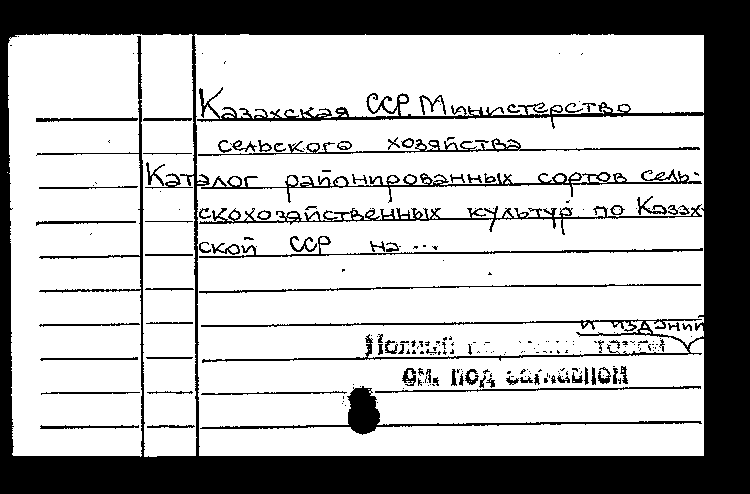 Казахская ССР. Министерство
сельского хозяйства
Каталог районированных сортов сель-
скохозяйственных культур по Казах-
ской ССР на ...
и изданий
Полный перечень томов
см. под заглавием